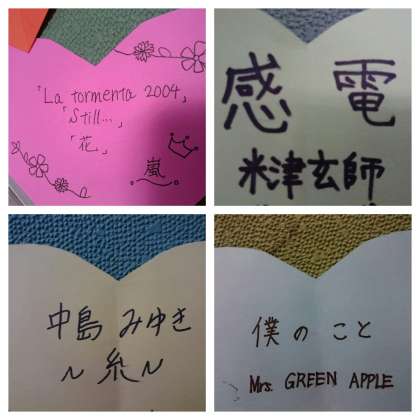 「La tormenta 2004」
「Still...」
「花」
嵐
感電
米津玄師
中島みゆき
〜糸〜
僕のこと
Mrs. GREEN APPLE